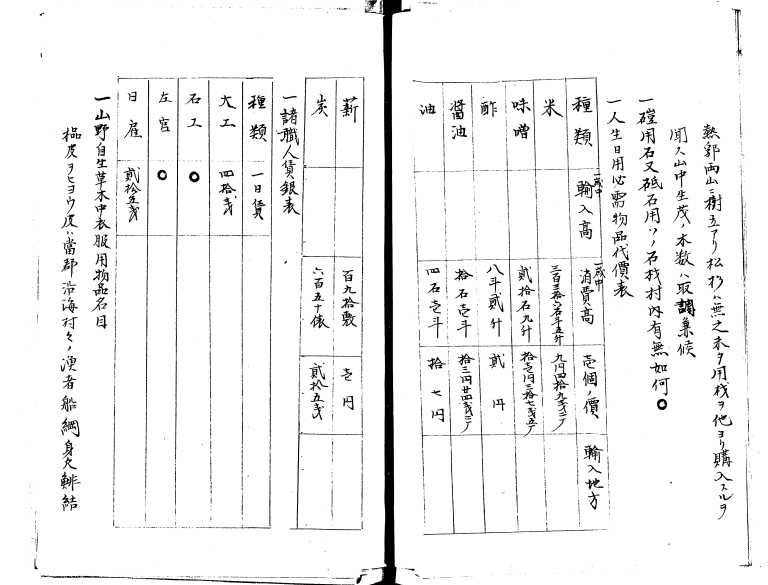 熱郛両山ニ樹立アリ松杉ハ無之木ヲ用材ヲ他ヨリ購入スルヲ
聞ス山中生茂ノ木数ハ取調兼候
一礎用石又砥石用ハノ石材村内有無如何〇
一人生日用必需物品代價表
種類 一ケ年中輸入高 一ケ年中消費高 壱個ノ價 輸入地方
米 三百三拾六石斗五升 九円四拾九銭二厂
味噌 貳拾石九升 拾壱円三拾七銭五厂
酢 八斗貳升 貳円
醤油 拾石壱斗 拾三円廿四銭二厂
油 四石壱斗 拾七円
薪 百九拾敷 壱円
炭 六百五十俵 貳拾五銭
一諸職人賃銀表
種類 一日賃
大工 四拾銭
石工 〇
左官 〇
日雇 貳拾五銭
一山野自生草木中衣服用物品名目
楡皮ヲヒヨウ皮ハ當郡沿海村々ノ漁者船綱身欠鯡結